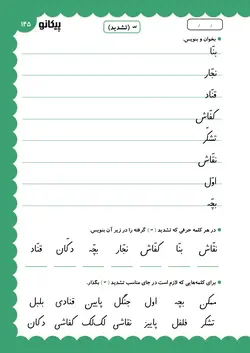 ۱۴۵ پیکانو ّ (تشدید) / /
بخوان و بنویس.
بنّا
نجّار
قنّاد
کفّاش
تشکّر
نقّاش
بچّه
اوّل
در هر کلمه حرفی که تشدید ( ّ ) گرفته را در زیر آن بنویس.
نقّاش بنّا کفّاش نجّار بچّه دکّان قنّاد
برای کلمه‌هایی که لازم است در جای مناسب تشدید ( ّ ) بگذار.
ممکن بچه اول جنگل پایین قنادی بلبل
تشکر فلفل پاییز نقاشی لک‌لک کفاشی دکان